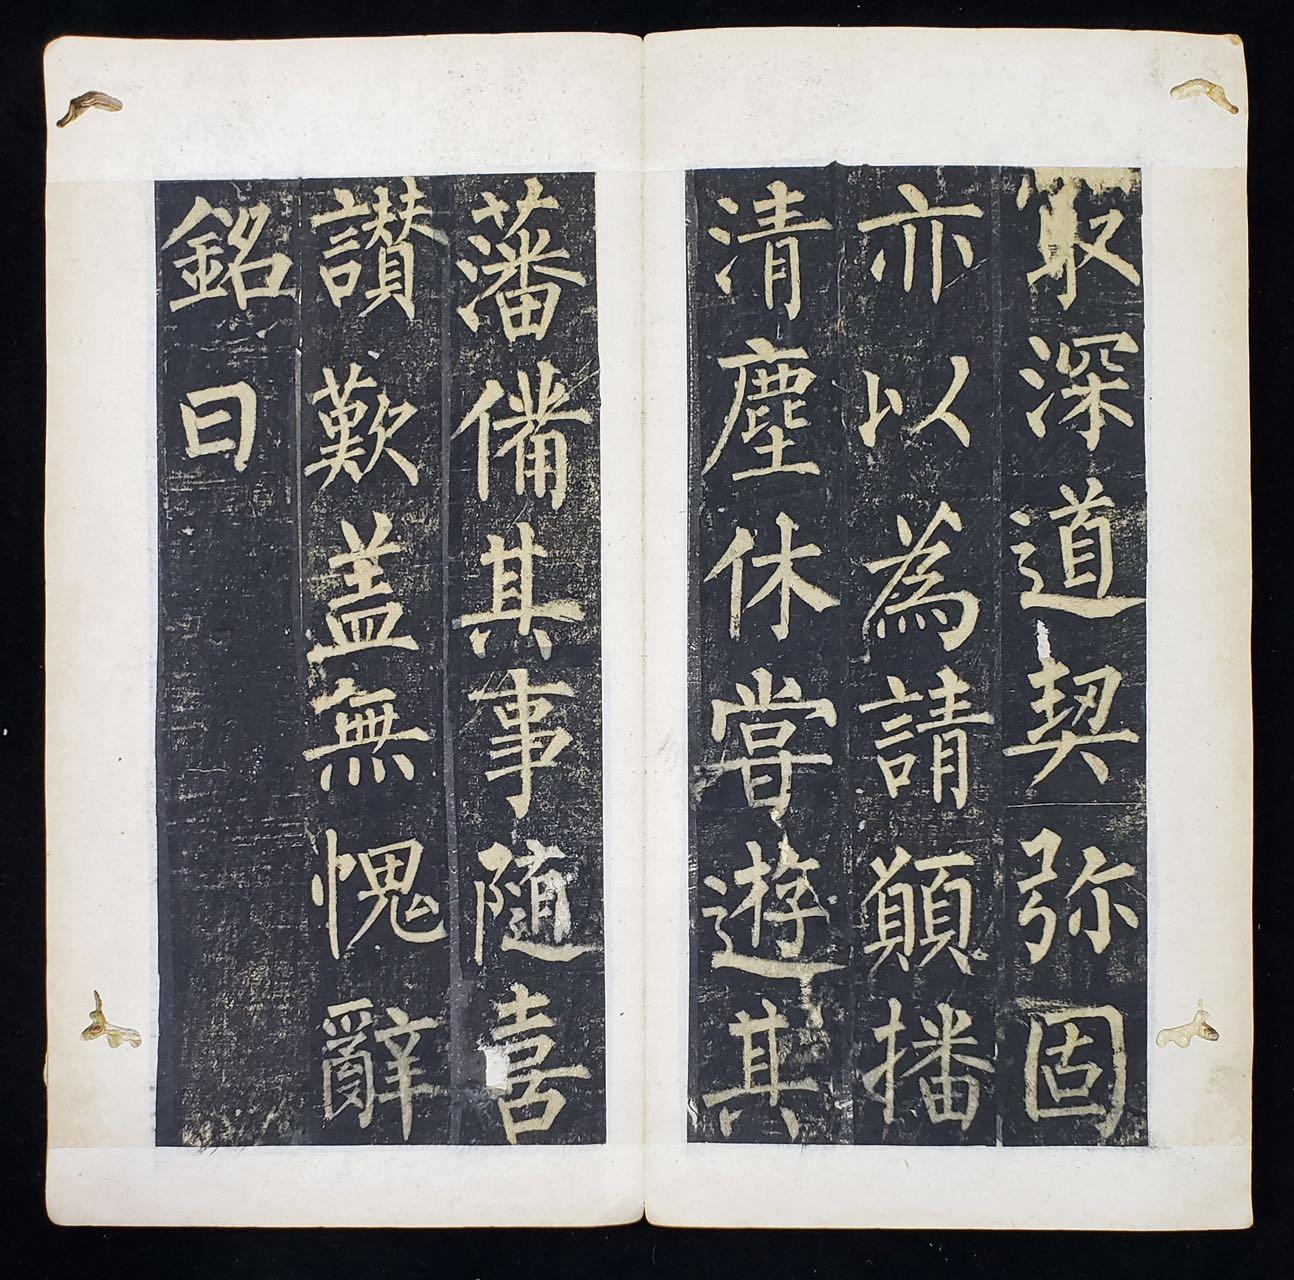 冣深道契弥固
亦以為請願播
清塵休嘗遊其
藩備其事隨喜
讃歎盖無愧辭
銘曰